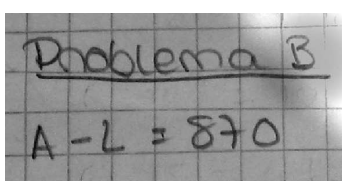 Problema B
A - L = 870